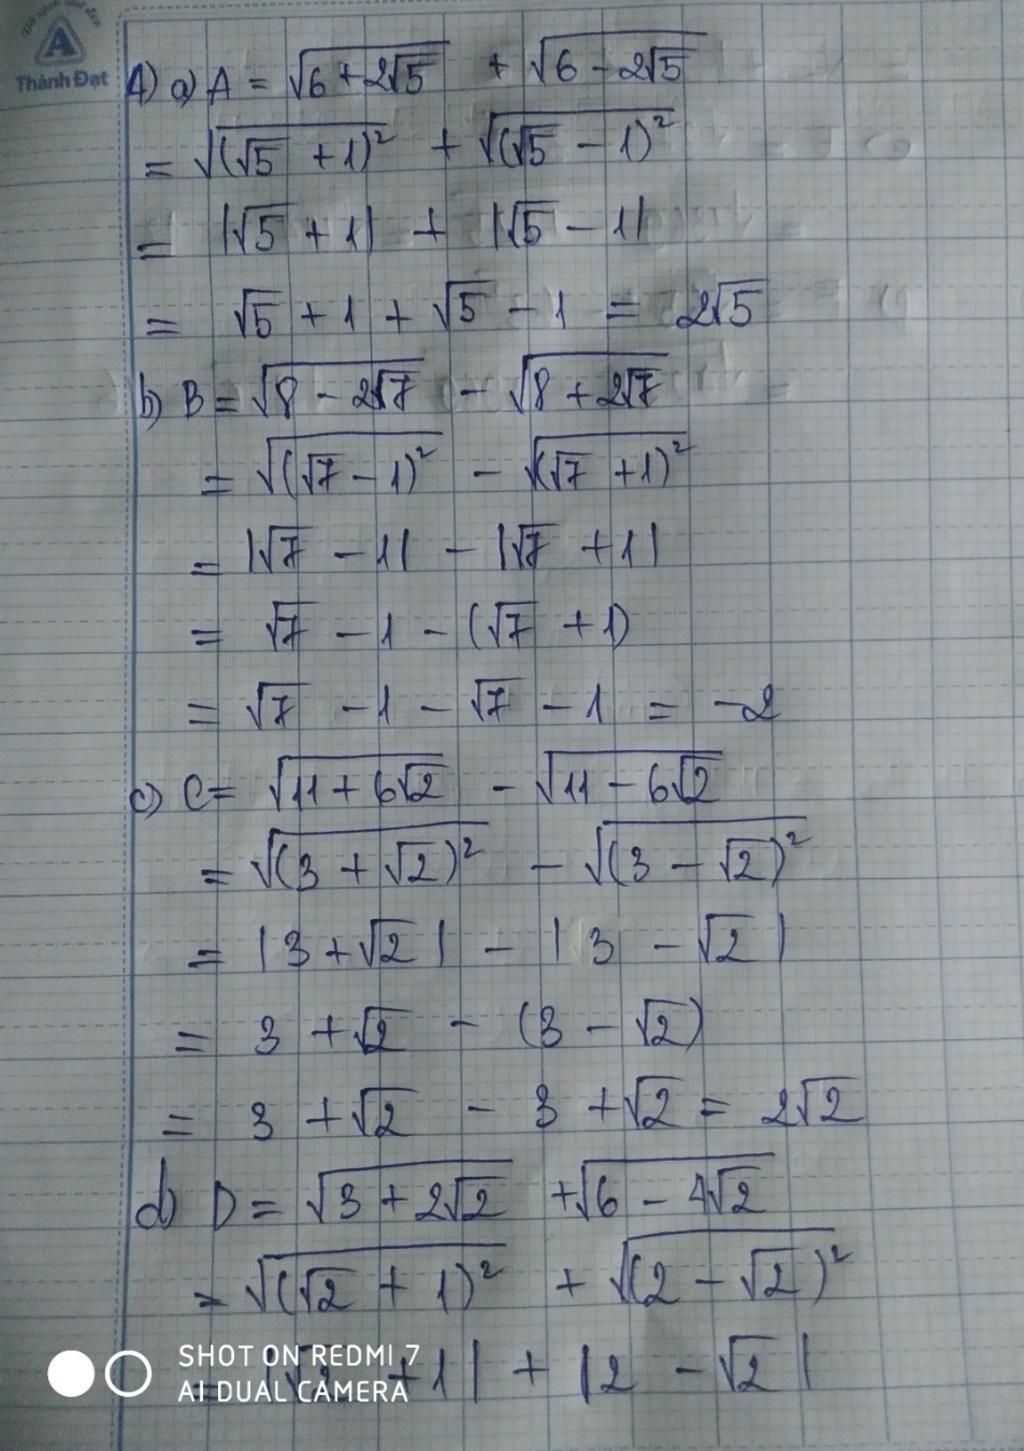 A
Thành Đạt
A) a) A = √(6 + 2√5) + √(6 - 2√5)
= √((√5 + 1)²) + √((√5 - 1)²)
= |√5 + 1| + |√5 - 1|
= √5 + 1 + √5 - 1 = 2√5
b) B = √(8 - 2√7) - √(8 + 2√7)
= √((√7 - 1)²) - √((√7 + 1)²)
= |√7 - 1| - |√7 + 1|
= √7 - 1 - (√7 + 1)
= √7 - 1 - √7 - 1 = -2
c) C = √(11 + 6√2) - √(11 - 6√2)
= √((3 + √2)²) - √((3 - √2)²)
= |3 + √2| - |3 - √2|
= 3 + √2 - (3 - √2)
= 3 + √2 - 3 + √2 = 2√2
d) D = √(3 + 2√2) + √(6 - 4√2)
= √((√2 + 1)²) + √((2 - √2)²)
|√2 + 1| + |2 - √2|
SHOT ON REDMI 7
AI DUAL CAMERA